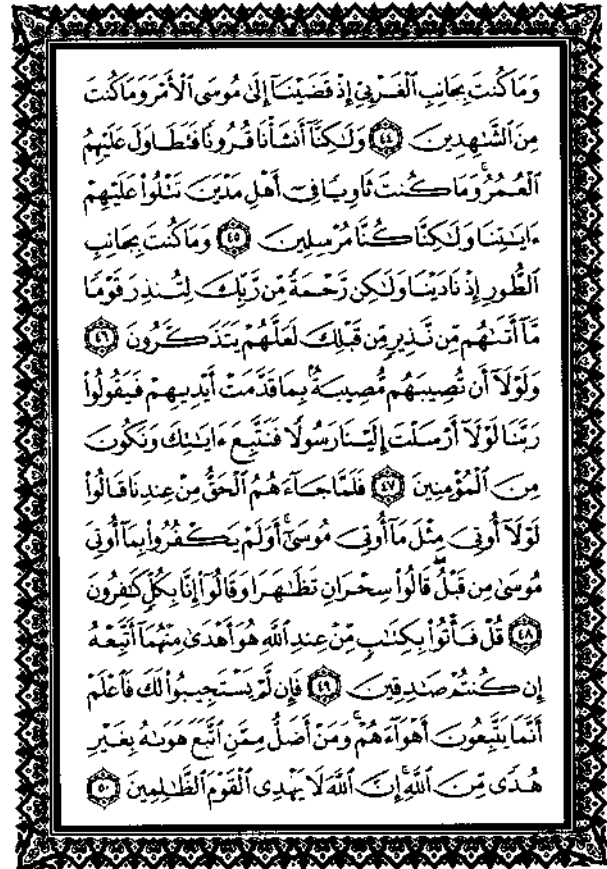 وَمَا كُنتَ بِجَانِبِ ٱلْغَرْبِىِّ إِذْ قَضَيْنَآ إِلَىٰ مُوسَى ٱلْأَمْرَ وَمَا كُنتَ
مِنَ ٱلشَّٰهِدِينَ ﴿٤٤﴾ وَلَٰكِنَّآ أَنشَأْنَا قُرُونًا فَتَطَاوَلَ عَلَيْهِمُ
ٱلْعُمُرُ ۚ وَمَا كُنتَ ثَاوِيًا فِىٓ أَهْلِ مَدْيَنَ تَتْلُوا۟ عَلَيْهِمْ
ءَايَٰتِنَا وَلَٰكِنَّا كُنَّا مُرْسِلِينَ ﴿٤٥﴾ وَمَا كُنتَ بِجَانِبِ
ٱلطُّورِ إِذْ نَادَيْنَا وَلَٰكِن رَّحْمَةً مِّن رَّبِّكَ لِتُنذِرَ قَوْمًا
مَّآ أَتَىٰهُم مِّن نَّذِيرٍ مِّن قَبْلِكَ لَعَلَّهُمْ يَتَذَكَّرُونَ ﴿٤٦﴾
وَلَوْلَآ أَن تُصِيبَهُم مُّصِيبَةٌۢ بِمَا قَدَّمَتْ أَيْدِيهِمْ فَيَقُولُوا۟
رَبَّنَا لَوْلَآ أَرْسَلْتَ إِلَيْنَا رَسُولًا فَنَتَّبِعَ ءَايَٰتِكَ وَنَكُونَ
مِنَ ٱلْمُؤْمِنِينَ ﴿٤٧﴾ فَلَمَّا جَآءَهُمُ ٱلْحَقُّ مِنْ عِندِنَا قَالُوا۟
لَوْلَآ أُوتِىَ مِثْلَ مَآ أُوتِىَ مُوسَىٰٓ ۚ أَوَلَمْ يَكْفُرُوا۟ بِمَآ أُوتِىَ
مُوسَىٰ مِن قَبْلُ ۖ قَالُوا۟ سِحْرَانِ تَظَٰهَرَا وَقَالُوٓا۟ إِنَّا بِكُلٍّ كَٰفِرُونَ
﴿٤٨﴾ قُلْ فَأْتُوا۟ بِكِتَٰبٍ مِّنْ عِندِ ٱللَّهِ هُوَ أَهْدَىٰ مِنْهُمَآ أَتَّبِعْهُ
إِن كُنتُمْ صَٰدِقِينَ ﴿٤٩﴾ فَإِن لَّمْ يَسْتَجِيبُوا۟ لَكَ فَٱعْلَمْ
أَنَّمَا يَتَّبِعُونَ أَهْوَآءَهُمْ ۚ وَمَنْ أَضَلُّ مِمَّنِ ٱتَّبَعَ هَوَىٰهُ بِغَيْرِ
هُدًى مِّنَ ٱللَّهِ ۚ إِنَّ ٱللَّهَ لَا يَهْدِى ٱلْقَوْمَ ٱلظَّٰلِمِينَ ﴿٥٠﴾